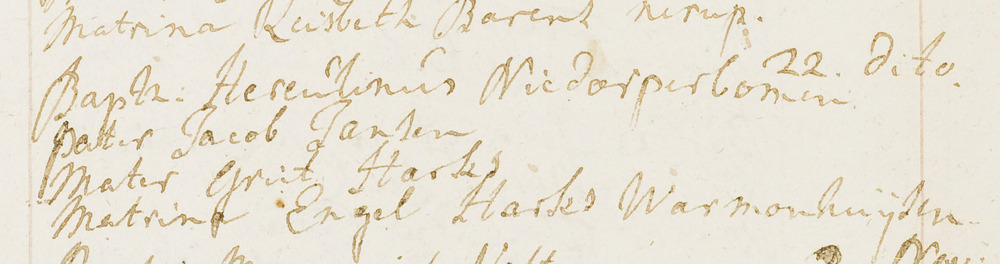 Matrina Leisbeth Barent nerup.
Bapt: Herculinus Niedorperlomen 22. dito.
pater Jacob Jansen
Mater Griet Harks
Matrina Engel Harks Warmonhuijsen
2 Nov: